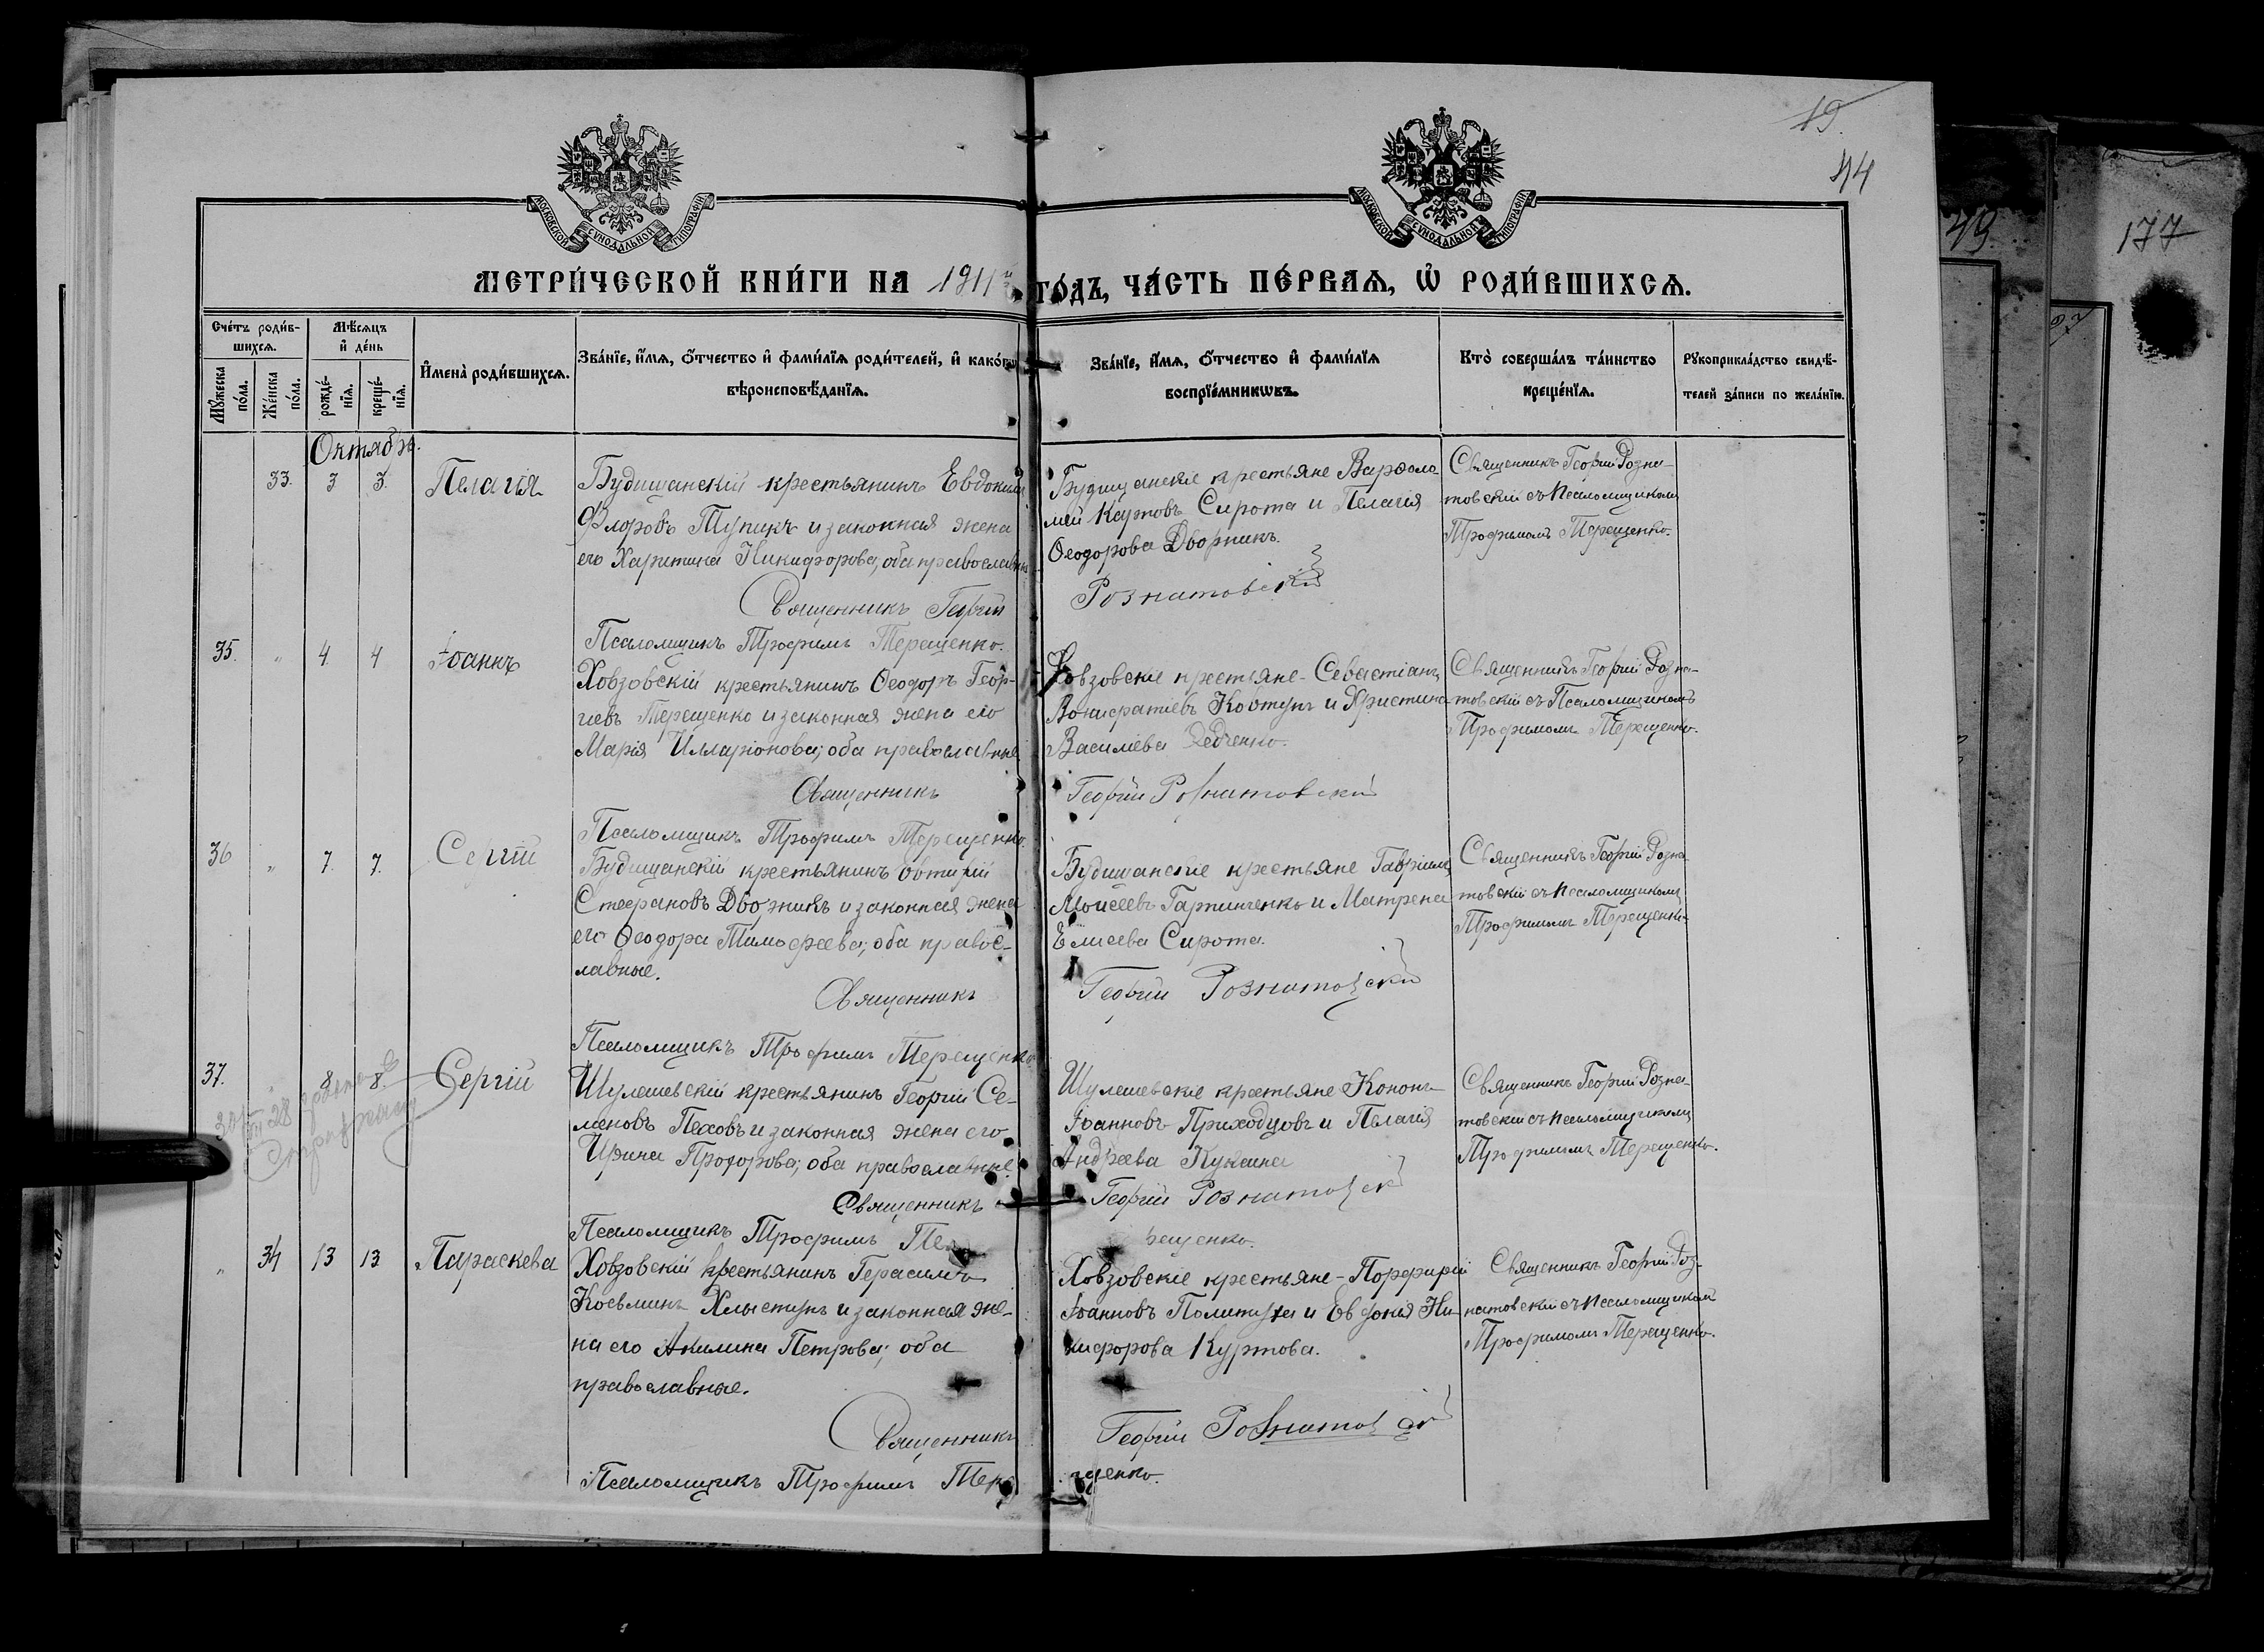 19.
44
49.
177
МОСКОВСКОЙ СѴНОДАЛЬНОЙ ТИПОГРАФІИ
МОСКОВСКОЙ СѴНОДАЛЬНОЙ ТИПОГРАФІИ
МЕТРИ́ЧЕСКОЙ КНИ́ГИ НА 1911й ГО́ДЪ, ЧА́СТЬ ПЕ́РВАѦ, Ѡ҆ РОДИ́ВШИХСѦ.
Сче́тъ роди́в-
шихсѧ.
Мꙋ́жеска по́ла.
Же́нска по́ла.
Мѣ́сѧцъ
и҆ де́нь
рожде́-
нїѧ.
креще́-
нїѧ.
И҆мена̀ роди́вшихсѧ.
Зва́нїе, и҆́мѧ, ѻ҆́тчество и҆ фами́лїѧ роди́телей, и҆ како́гѡ
вѣроисповѣ́данїѧ.
Зва́нїе, и҆́мѧ, ѻ҆́тчество и҆ фами́лїѧ
воспрїе́мникѡвъ.
Кто̀ соверша́лъ та́инство
креще́нїѧ.
Рꙋкоприкла́дство свидѣ́-
телей за́писи по жела́нїю.
Октябрь.
33. 3 3. Пелагія
Будищанскій крестьянинъ Евдокимъ
Флоровъ Тупикъ и законная жена
его Харитина Никифорова, оба православн
Священникъ Георгій
Псаломщикъ Трофимъ Терещенко.
Будищанскіе крестьяне Варѳоло-
мей Карповъ Сирота и Пелагія
Ѳеодорова Дворникъ.
Рознатовскій
Священникъ Георгій Розна-
товскій съ псаломщикомъ
Трофимомъ Терещенко.
35. " 4. 4 Іоаннъ
Ховзовскій крестьянинъ Ѳеодоръ Геор-
гіевъ Терещенко и законная жена его
Марія Илларіонова; оба православные
Священникъ
Псаломщикъ Трофимъ Терещенко.
Ховзовскіе крестьяне - Севастіанъ
Вонифатіевъ Ковтунъ и Христина
Василіева Дедченко.
Георгій Рознатовскій
Священникъ Георгій Розна-
товскій съ Псаломщикомъ
Трофимомъ Терещенко.
36 " 7. 7. Сергій
Будищанскій крестьянинъ Евтихій
Стефановъ Дворникъ и законная жена
его Ѳеодора Тимофеева; оба правос-
лавные.
Священникъ
Псаломщикъ Трофимъ Терещенко
Будищанскіе крестьяне Гавріилъ
Моисеевъ Гарпинченко и Матрена
Елисеева Сирота.
Георгій Рознатовскій
Священникъ Георгій Розна-
товскій съ псаломщикомъ
Трофимомъ Терещенко.
37. " 8. 8. Сергій
Шулешевскій крестьянинъ Георгій Се-
меновъ Пеховъ и законная жена его
Ирина Прохорова; оба православные.
Священникъ
Псаломщикъ Трофимъ Те-
Шулешевскіе крестьяне Кононъ
Іоанновъ Приходцовъ и Пелагія
Андреева Кужина
Георгій Рознатовскій
рещенко.
Священникъ Георгій Розна-
товскій съ псаломщикомъ
Трофимомъ Терещенко.
" 34 13 13 Параскева
Ховзовскій крестьянинъ Герасимъ
Косьминъ Хлыстунъ и законная же-
на его Акилина Петрова; оба
православные.
Священникъ
Псаломщикъ Трофимъ Тере
Ховзовскіе крестьяне - Порфирій
Іоанновъ Политуха и Евдокія Ни-
кифорова Куртова.
Георгій Рознатовскій
щенко.
Священникъ Георгій Роз-
натовскій съ псаломщикомъ
Трофимомъ Терещенко.